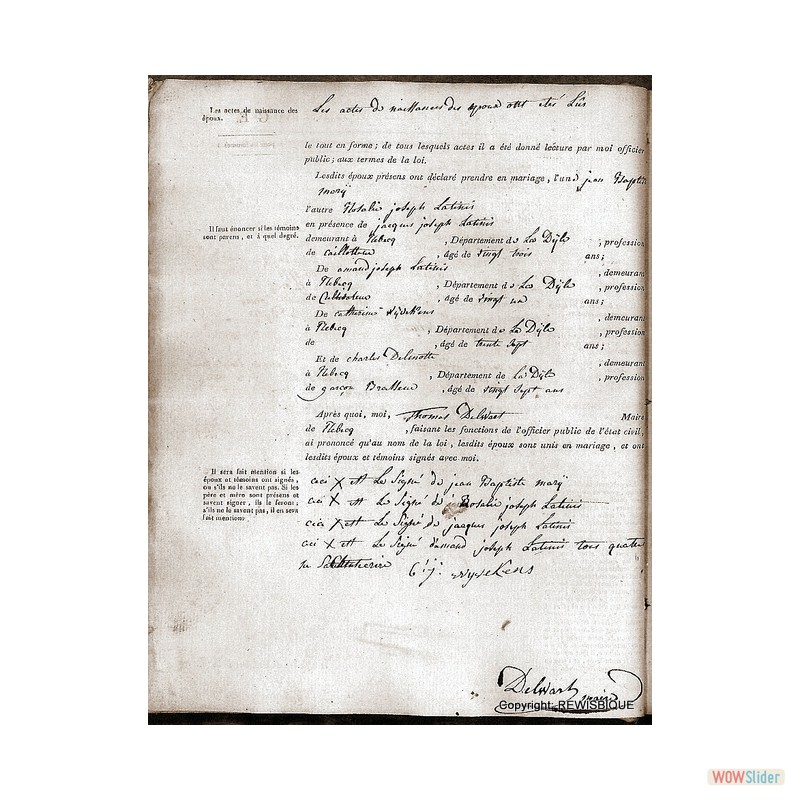 Les actes de naissance des
époux.
Les actes de naissances des epoux ont etés Lûs
le tout en forme ; de tous lesquels actes il a été donné lecture par moi officier
public ; aux termes de la loi.
Lesdits époux présens ont déclaré prendre en mariage, l'un jean Baptiste
marÿ
l'autre Rosalie joseph Latinis
Il faut énoncer si les témoins
sont parens, et à quel degré.
en présence de jacques joseph Latinis
demeurant à Rebecq , Département de La Dÿle , profession
de , âgé de vingt trois ans ;
De amand joseph Latinis , demeurant
à Rebecq , Département de La Dÿle , profession
de , âgé de vingt un ans ;
De catherine , demeurant
à Rebecq , Département de La Dÿle , profession
de , âgé de trente sept ans ;
Et de charles , demeurant
à Rebecq , Département de La Dÿle , profession
de garçon Brasseur , âgé de vingt sept ans
Après quoi, moi, Thomas Delwart Maire
de Rebecq , faisant les fonctions de l'officier public de l'état civil,
ai prononcé qu'au nom de la loi, lesdits époux sont unis en mariage, et ont
lesdits époux et témoins signés avec moi.
Il sera fait mention si les
époux et témoins ont signés,
ou s'ils ne le savent pas. Si les
père et mère sont présens et
savent signer, ils le feront ;
s'ils ne le savent pas, il en sera
fait mention.
ceci X est Le Signé de jean Baptiste marÿ
ceci X est Le Signé de Rosalie joseph Latinis
ceci X est Le Signé de jacques joseph Latinis
ceci X est Le Signé d'amand joseph Latinis tous quatre
Delwart
maire
Copyright: REWISBIQUE
WOWSlider